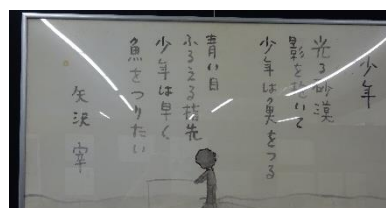 少年
光る砂漠
影をだいて
少年は魚をつる
青い目
ふるえる指先
少年は早く
魚をつりたい
矢沢 宰